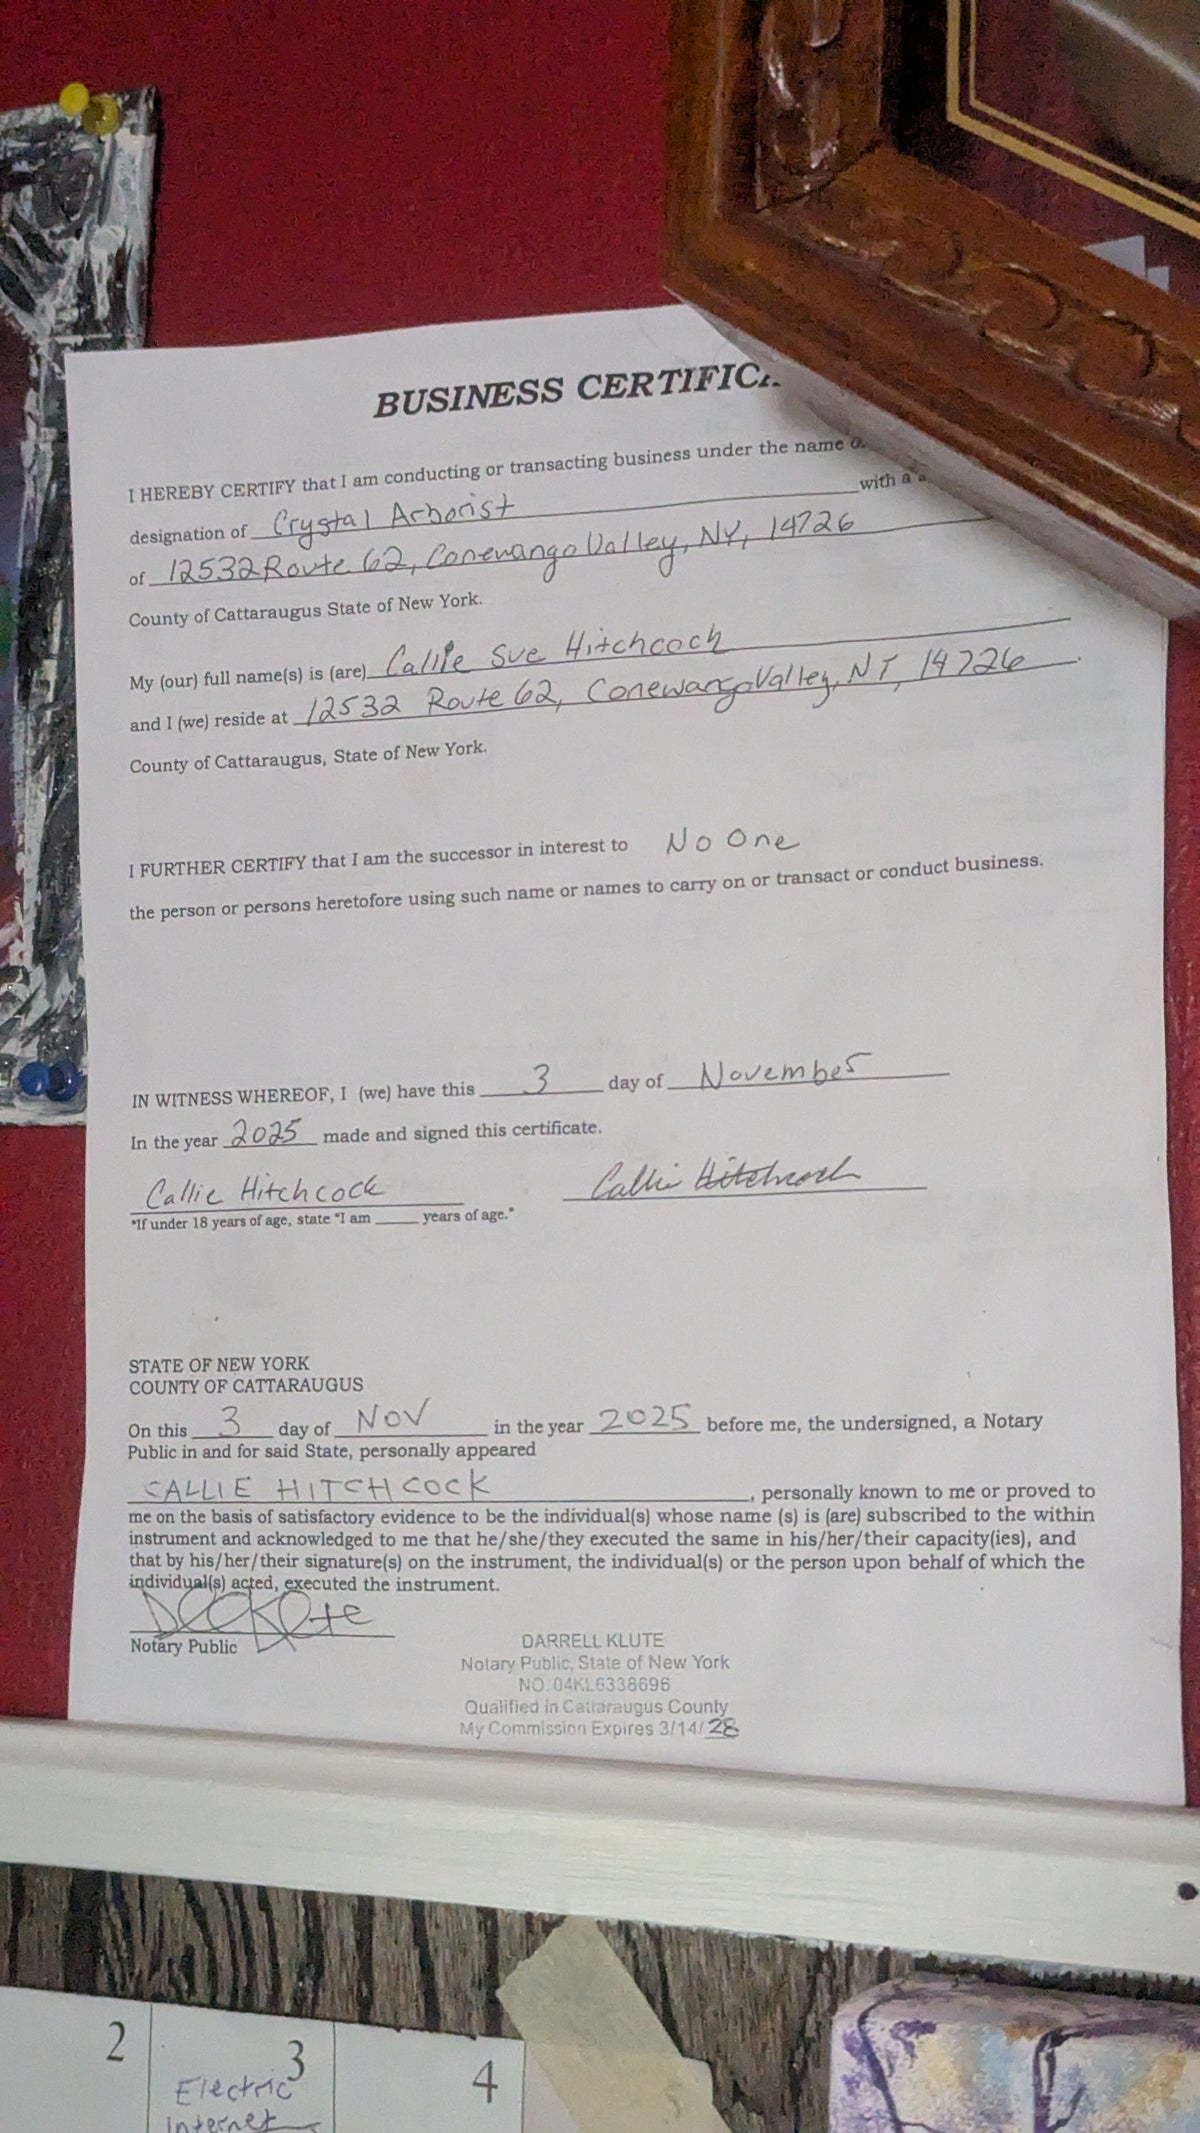 BUSINESS CERTIFIC
I HEREBY CERTIFY that I am conducting or transacting business under the name
designation of Crystal Arborist with a
of 12532 Route 62, Conewango Valley, NY, 14726
County of Cattaraugus State of New York.
My (our) full name(s) is (are) Callie Sue Hitchcock
and I (we) reside at 12532 Route 62, Conewango Valley, NY, 14726.
County of Cattaraugus, State of New York.
I FURTHER CERTIFY that I am the successor in interest to No One
the person or persons heretofore using such name or names to carry on or transact or conduct business.
IN WITNESS WHEREOF, I (we) have this 3 day of November
In the year 2025 made and signed this certificate.
Callie Hitchcock Callie Hitchcock
*If under 18 years of age, state "I am ____ years of age."
STATE OF NEW YORK
COUNTY OF CATTARAUGUS
On this 3 day of NOV in the year 2025 before me, the undersigned, a Notary
Public in and for said State, personally appeared
CALLIE HITCHCOCK, personally known to me or proved to
me on the basis of satisfactory evidence to be the individual(s) whose name (s) is (are) subscribed to the within
instrument and acknowledged to me that he/she/they executed the same in his/her/their capacity(ies), and
that by his/her/their signature(s) on the instrument, the individual(s) or the person upon behalf of which the
individual(s) acted, executed the instrument.
Notary Public
DARRELL KLUTE
Notary Public, State of New York
NO. 04KL6338696
Qualified in Cattaraugus County
My Commission Expires 3/14/28
2 3 4
Electric
Internet
5